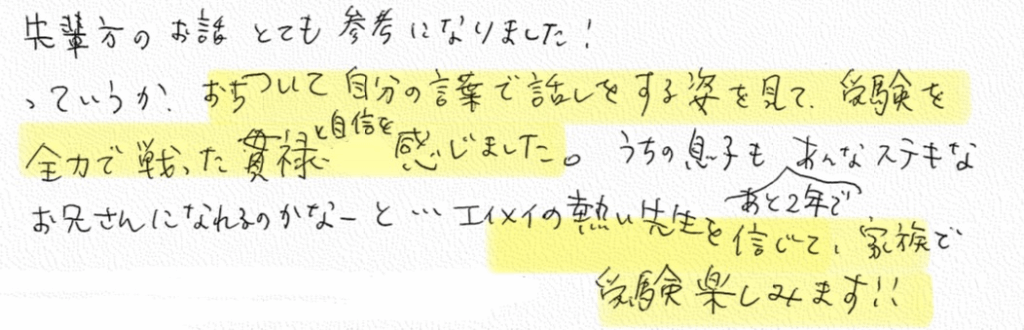 先輩方のお話とても参考になりました!
っていうか、おちついて自分の言葉で話しをする姿を見て、受験を
全力で戦った貫禄と自信を感じました。うちの息子もあんなステキな
お兄さんになれるのかなーと…エイメイの熱い先生とあと2年で信じて、家族で
受験楽しみます!!